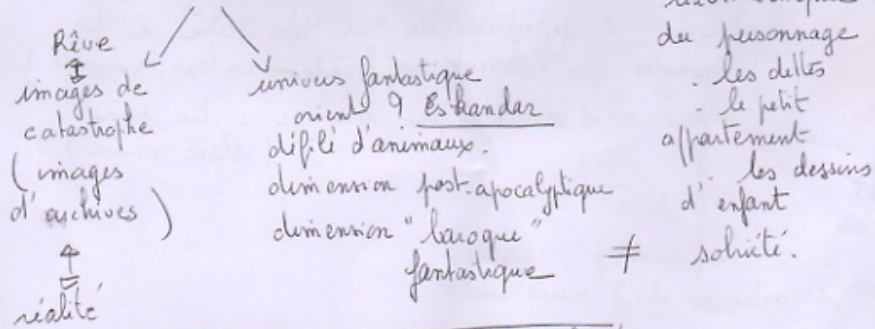 Rêve
images de
catastrophe
(images
d'archives)
réalité
univers fantastique
orient ? Eskandar
défilé d'animaux.
dimension post-apocalyptique
dimension "baroque"
fantastique
≠
du personnage
- les dettes
- le petit
appartement
- les dessins
d'enfant
sobriété.